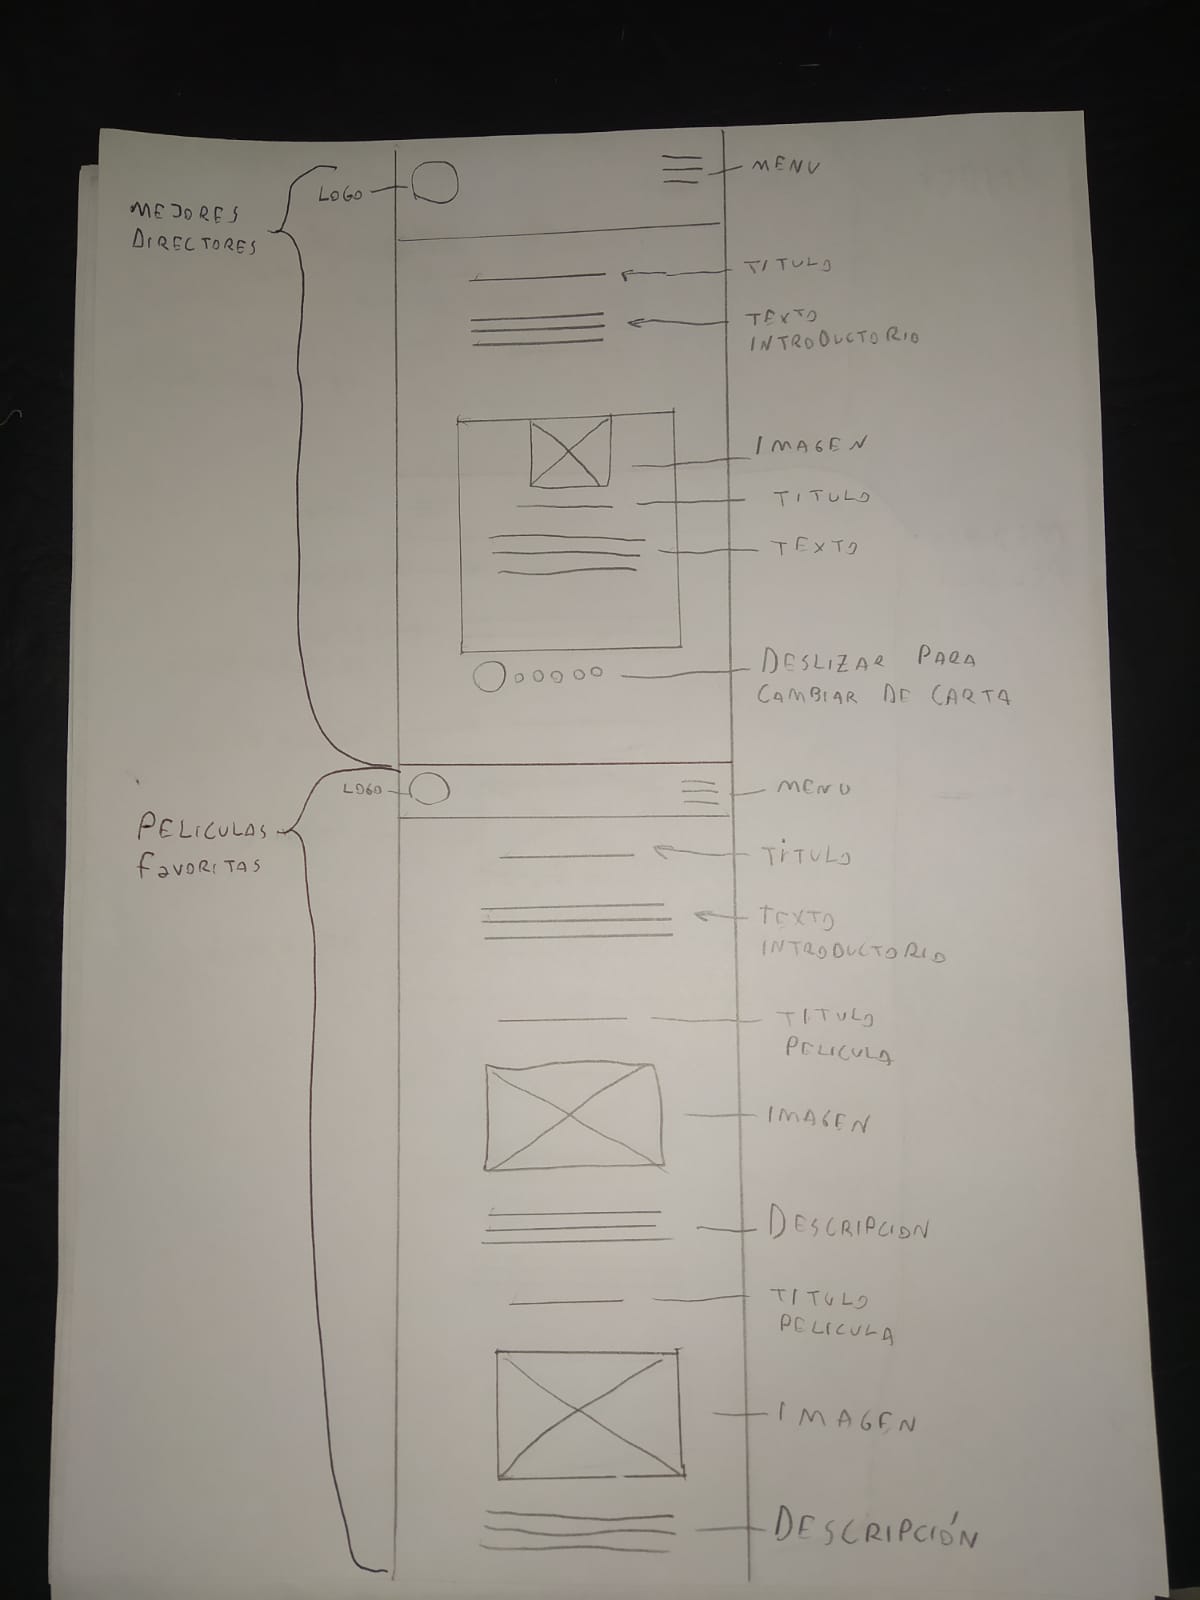 MEJORES
DIRECTORES
LOGO
MENU
TITULO
TEXTO
INTRODUCTORIO
IMAGEN
TITULO
TEXTO
DESLIZAR PARA
CAMBIAR DE CARTA
PELICULAS
FAVORITAS
LOGO
MENU
TÍTULO
TEXTO
INTRODUCTORIO
TITULO
PELICULA
IMAGEN
DESCRIPCION
TITULO
PELICULA
IMAGEN
DESCRIPCIÓN